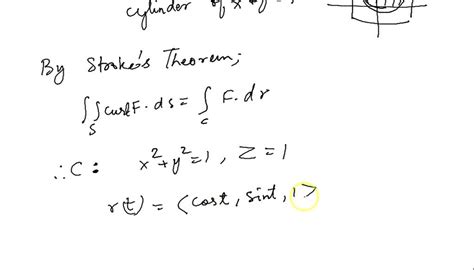 cylinder of x
By Stroke's Theorem;
∬_S curl F · ds = ∫_C F · dr
∴ C : x² + y² = 1 , Z = 1
r(t) = ⟨cost, sint, 1⟩